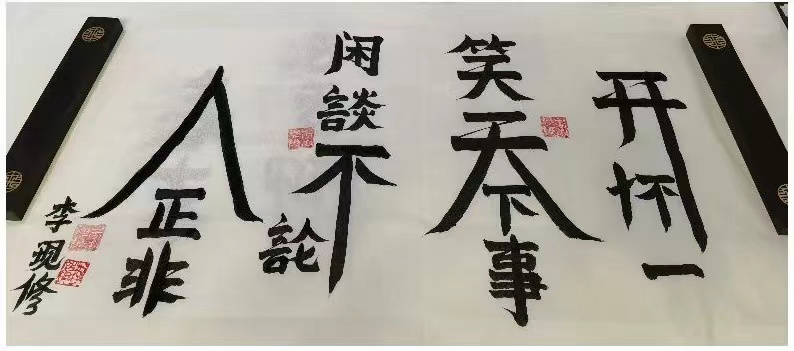 开怀一
笑天下事
闲談不論
人正非
李现修